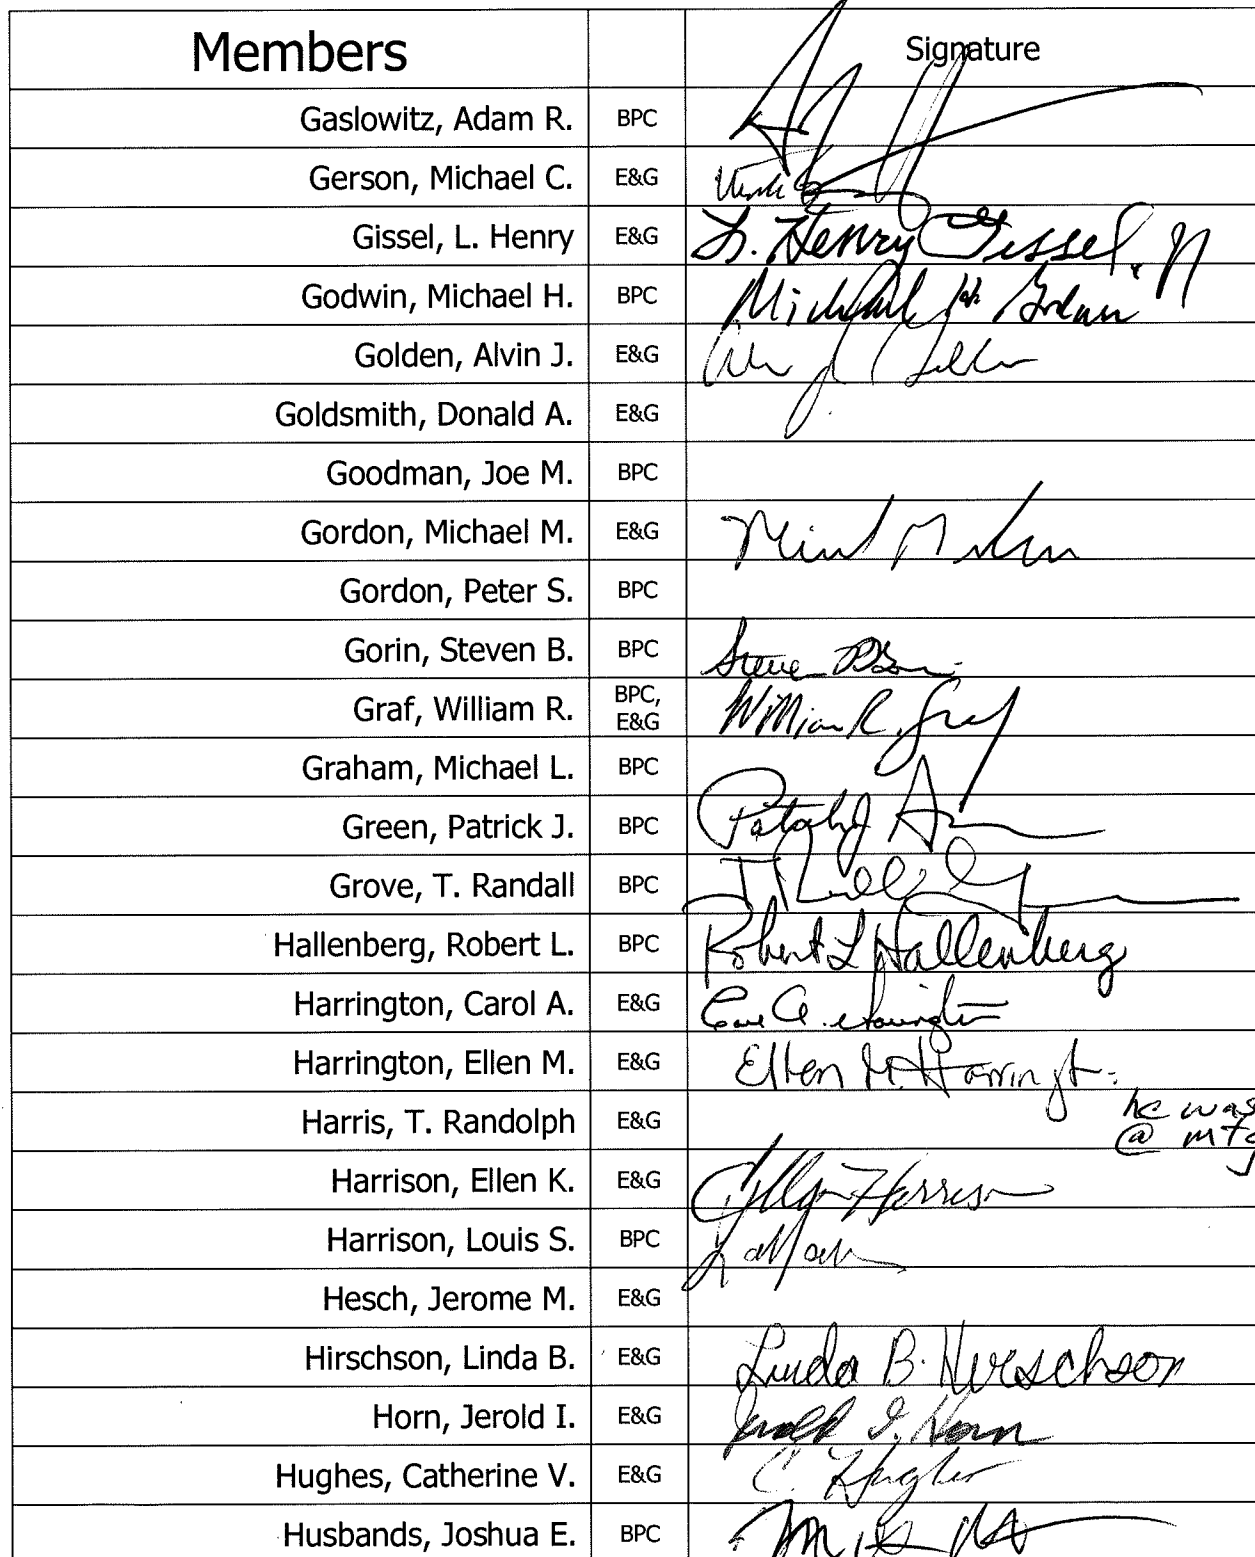 Members Signature
Gaslowitz, Adam R. BPC
Gerson, Michael C. E&G
Gissel, L. Henry E&G L. Henry Gissel, Jr
Godwin, Michael H. BPC Michael H. Godwin
Golden, Alvin J. E&G
Goldsmith, Donald A. E&G
Goodman, Joe M. BPC
Gordon, Michael M. E&G
Gordon, Peter S. BPC
Gorin, Steven B. BPC Steve B Gorin
Graf, William R. BPC, E&G William R. Graf
Graham, Michael L. BPC
Green, Patrick J. BPC
Grove, T. Randall BPC
Hallenberg, Robert L. BPC Robert L Hallenberg
Harrington, Carol A. E&G Carol A. Harrington
Harrington, Ellen M. E&G Ellen M. Harrington
Harris, T. Randolph E&G he was
@ mtg
Harrison, Ellen K. E&G Ellen Harrison
Harrison, Louis S. BPC
Hesch, Jerome M. E&G
Hirschson, Linda B. E&G Linda B. Hirschson
Horn, Jerold I. E&G Jerold I. Horn
Hughes, Catherine V. E&G C Hughes
Husbands, Joshua E. BPC